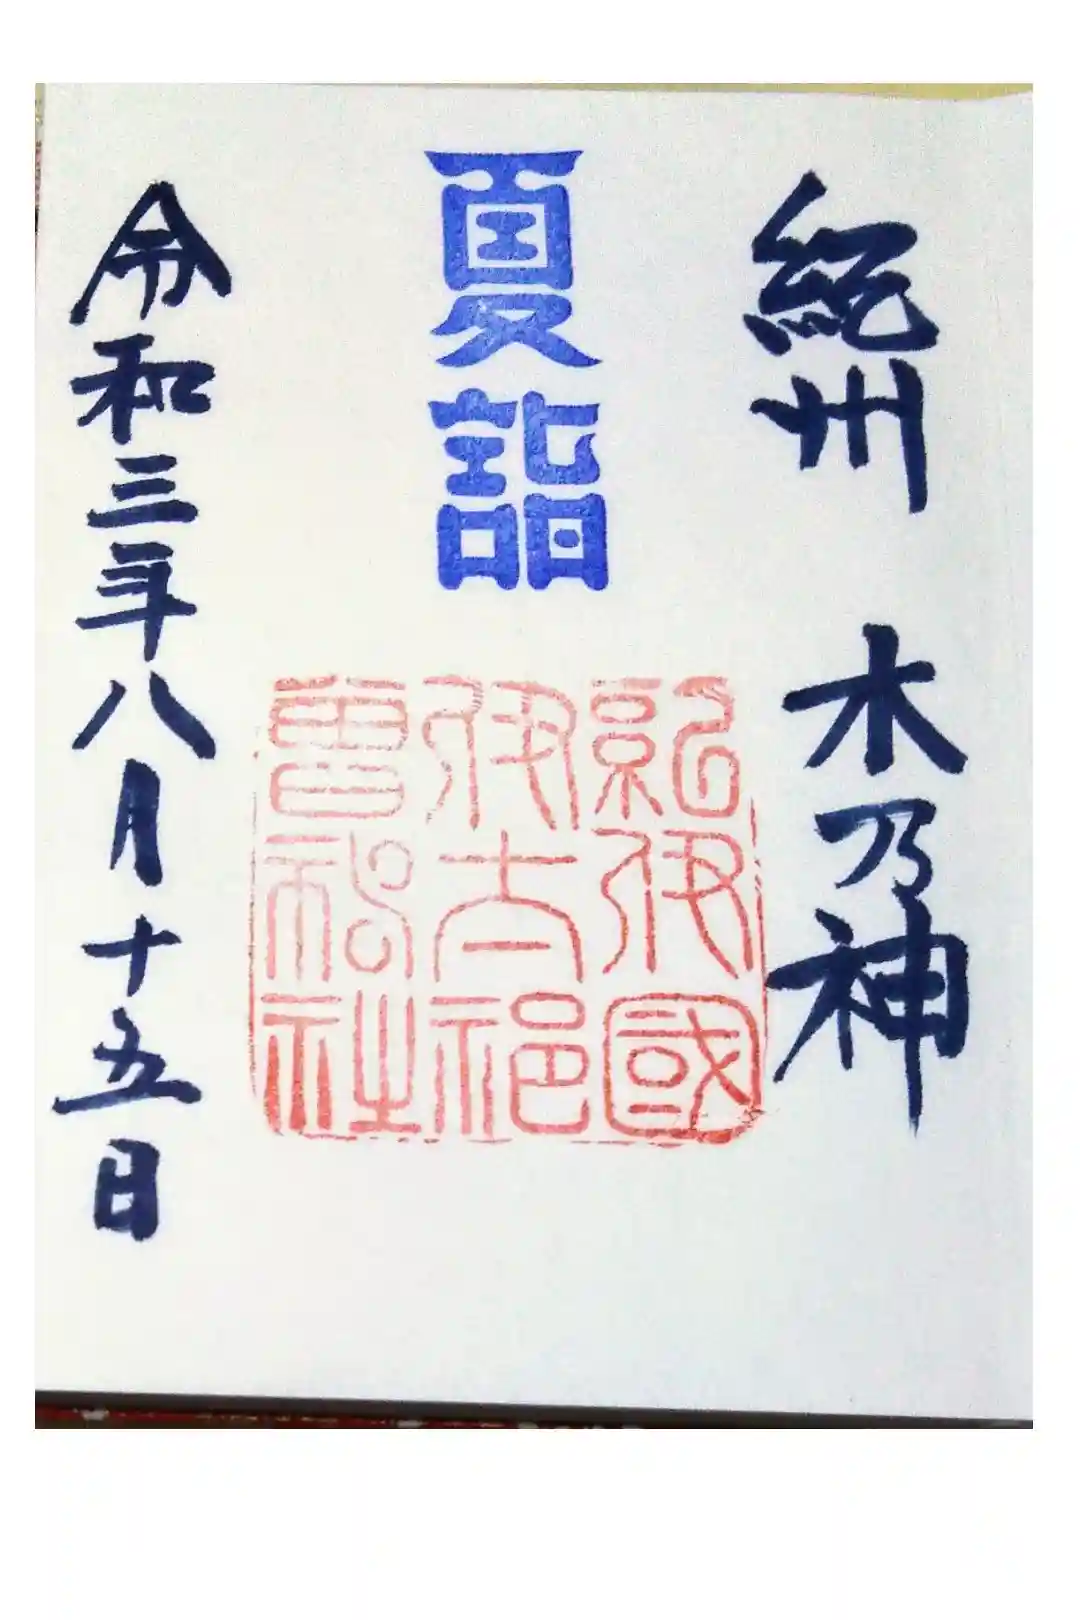 紀州 木乃神
夏詣
紀伊國
伊太祁
曾神社
令和三年八月十五日